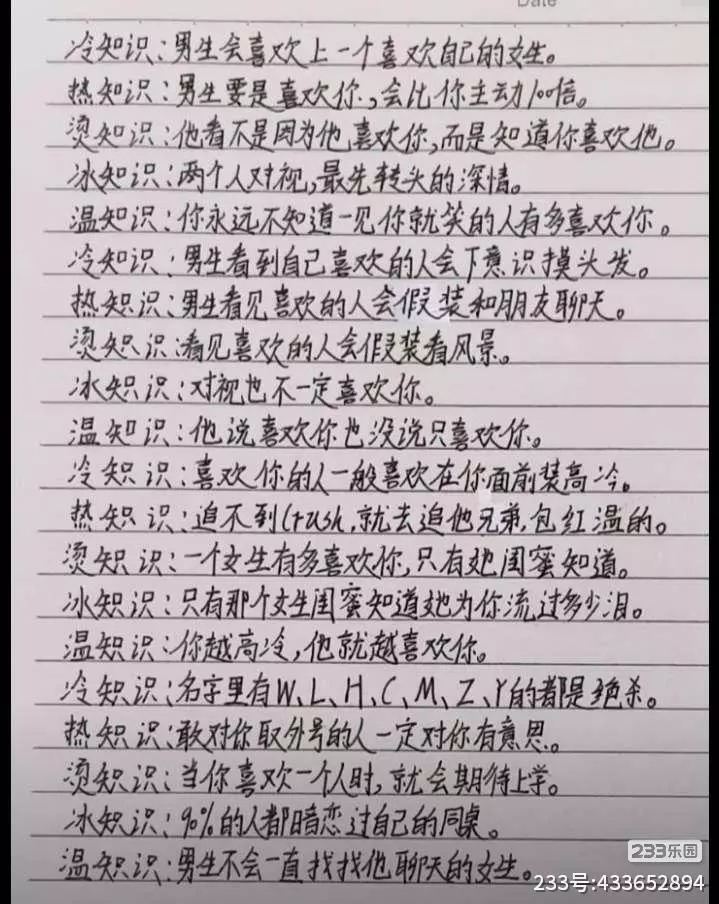 Date
冷知识：男生会喜欢上一个喜欢自己的女生。
热知识：男生要是喜欢你，会比你主动100倍。
烫知识：他看不是因为他喜欢你，而是知道你喜欢他。
冰知识：两个人对视，最先转头的深情。
温知识：你永远不知道一见你就笑的人有多喜欢你。
冷知识：男生看到自己喜欢的人会下意识摸头发。
热知识：男生看见喜欢的人会假装和朋友聊天。
烫知识：看见喜欢的人会假装看风景。
冰知识：对视也不一定喜欢你。
温知识：他说喜欢你也没说只喜欢你。
冷知识：喜欢你的人一般喜欢在你面前装高冷。
热知识：追不到Crush，就去追他兄弟，包红温的。
烫知识：一个女生有多喜欢你，只有她闺蜜知道。
冰知识：只有那个女生闺蜜知道她为你流过多少泪。
温知识：你越高冷，他就越喜欢你。
冷知识：名字里有W、L、H、C、M、Z、Y的都是绝杀。
热知识：敢对你取外号的人一定对你有意思。
烫知识：当你喜欢一个人时，就会期待上学。
冰知识：90%的人都暗恋过自己的同桌。
温知识：男生不会一直找找他聊天的女生。
233乐园
233号:433652894